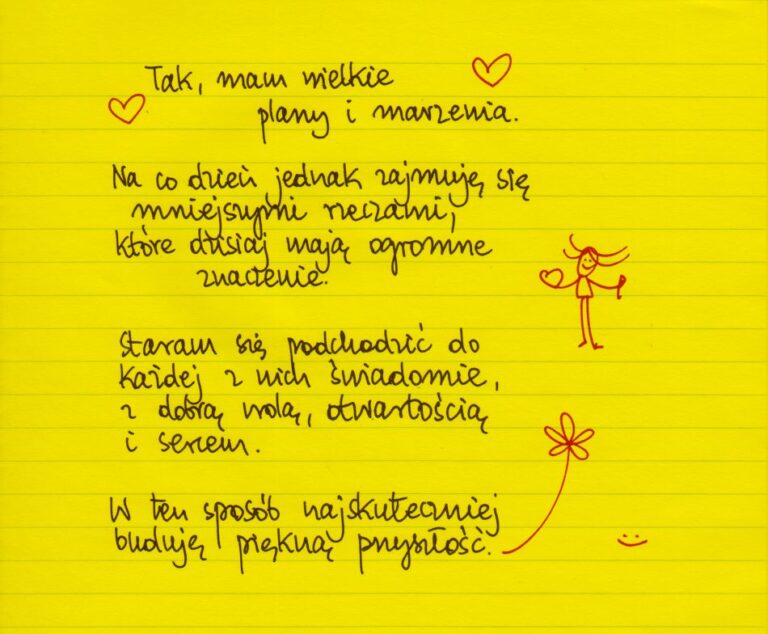 Tak, mam wielkie
plany i marzenia.
Na co dzień jednak zajmuję się
mniejszymi rzeczami,
które dzisiaj mają ogromne
znaczenie.
Staram się podchodzić do
każdej z nich świadomie,
z dobrą wolą, otwartością
i sercem.
W ten sposób najskuteczniej
buduję piękną przyszłość.